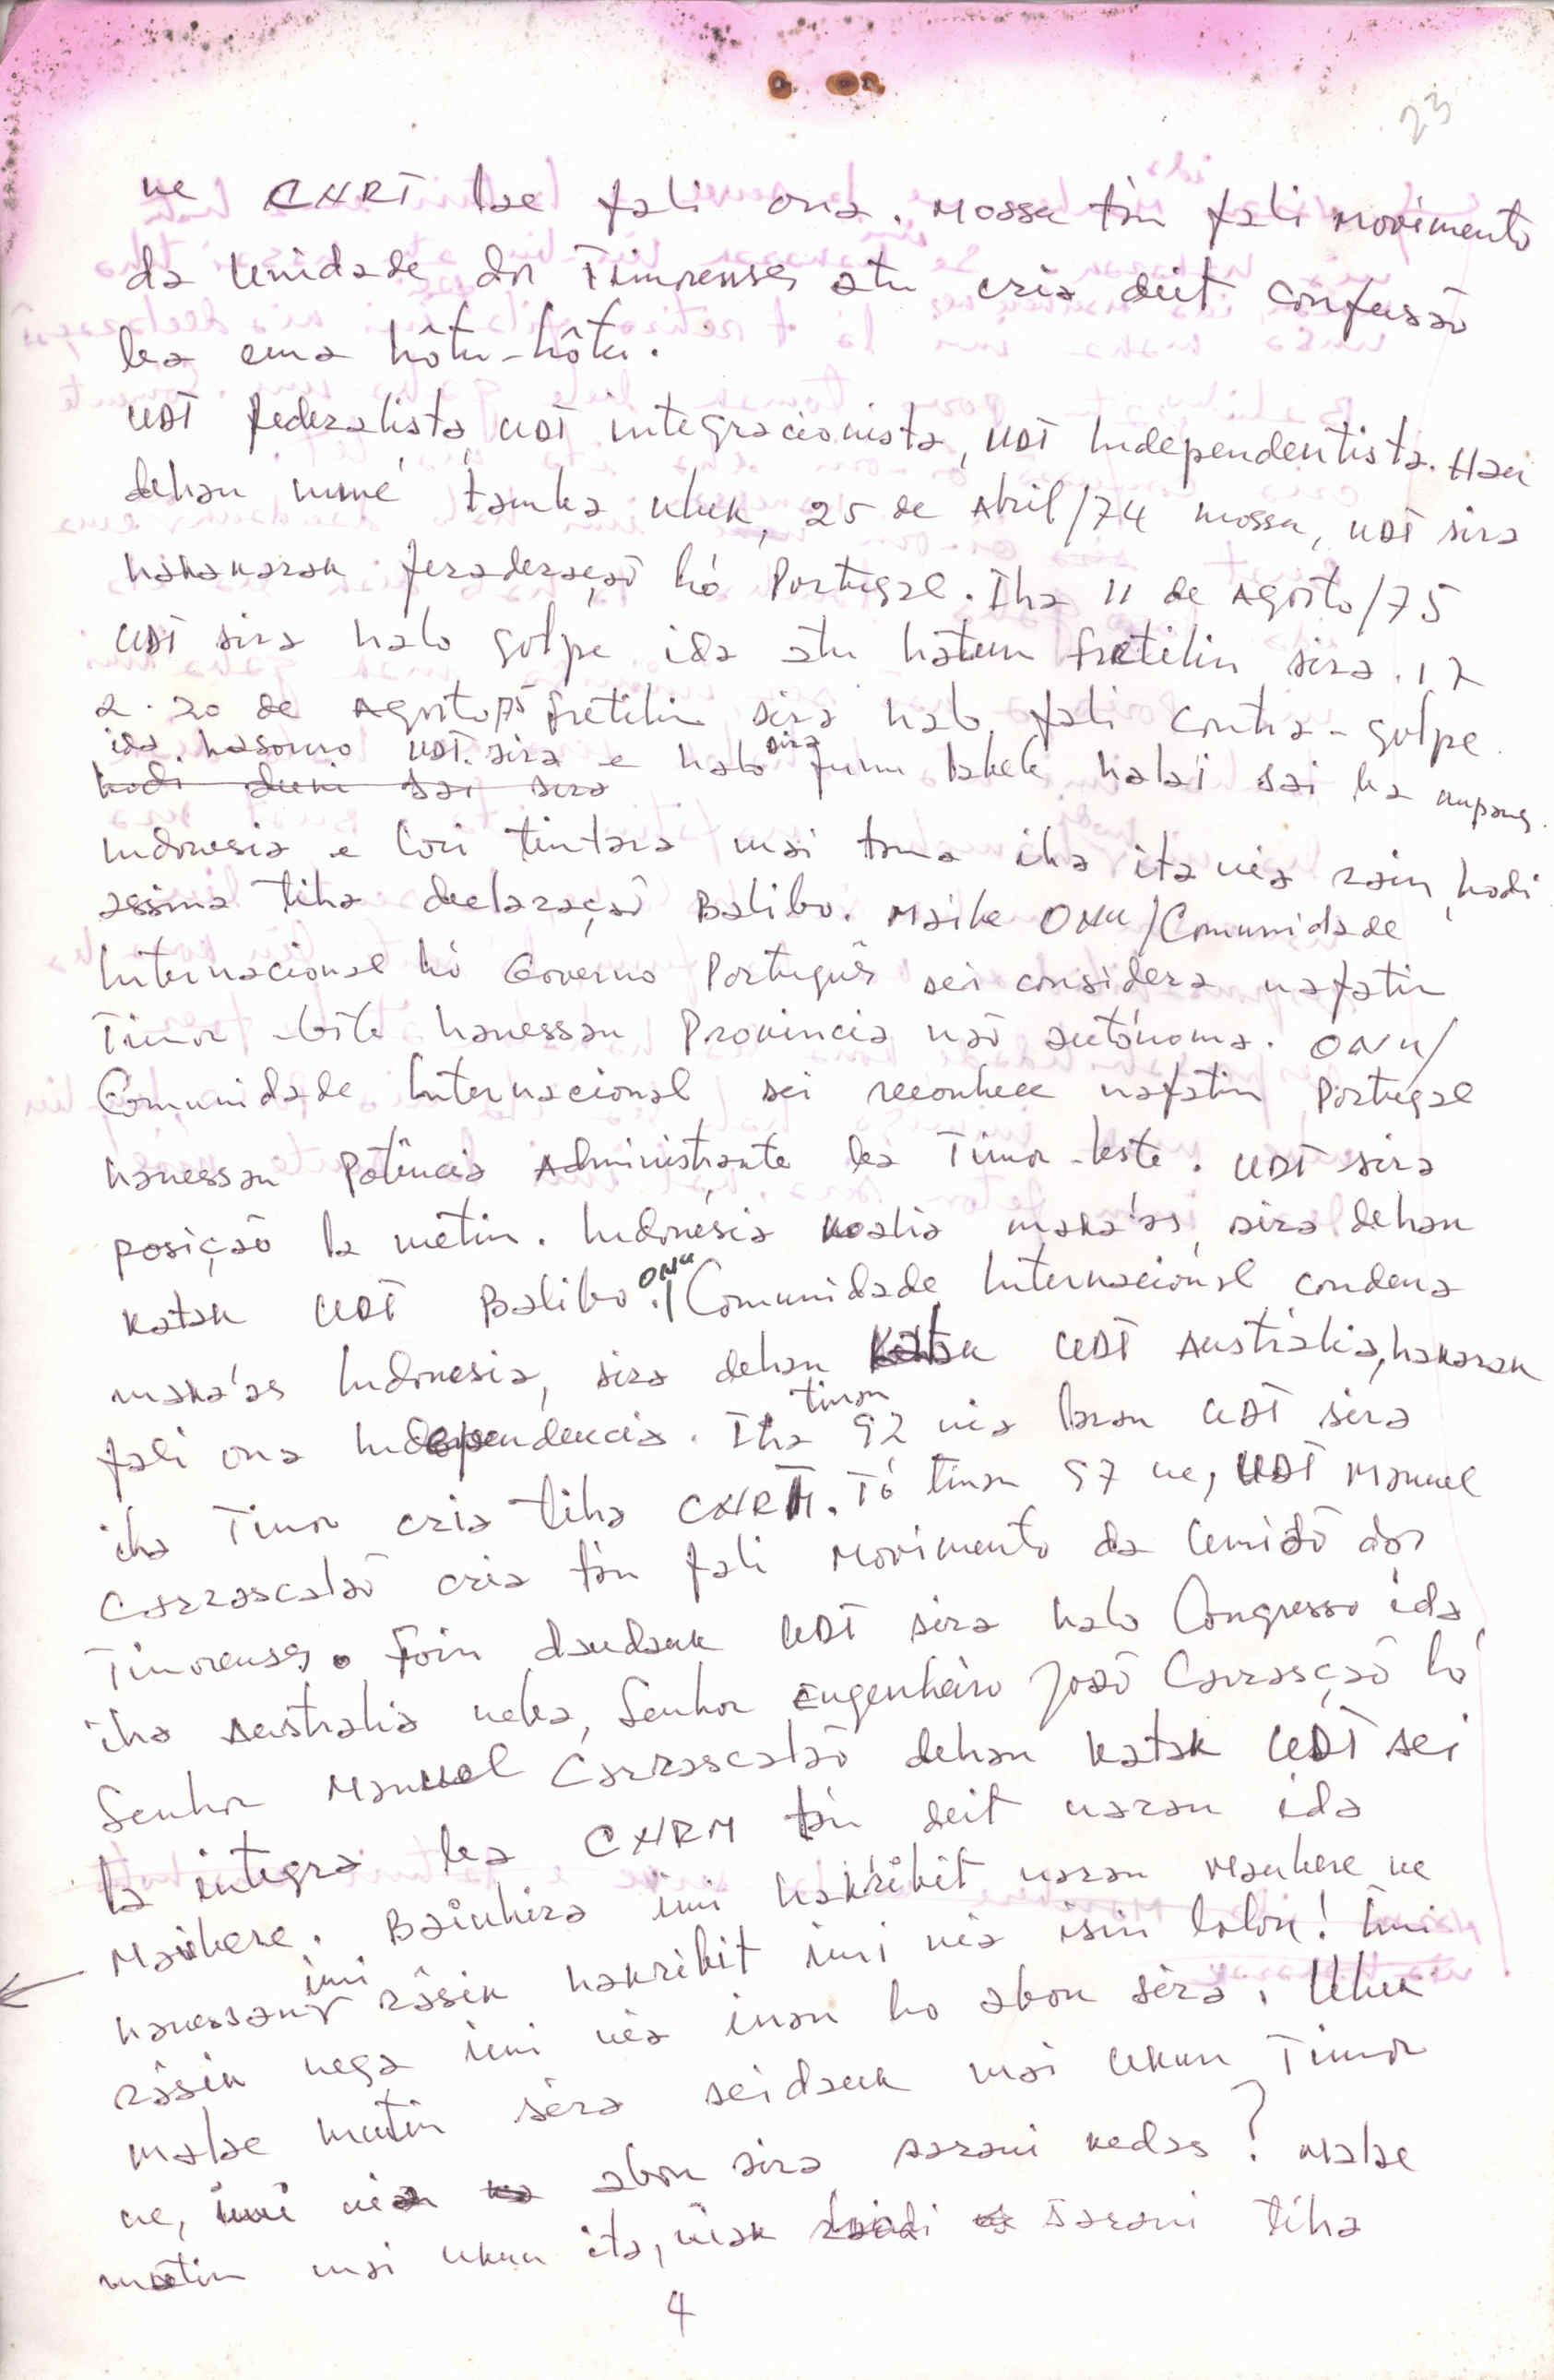 23
ne CNRT lae fali ona. Mossu tán fali Movimento
da Unidade dos Timorenses atu cria deit confusão
ba ema hôtu-hôtu.
UDT federalista, UDT integracionista, UDT Independentista. Hau
dehan nuné tamba uluk, 25 de Abril/74 mossu, UDT sira
hakarak feraderação hó Portugal. Iha 11 de Agosto/75
UDT sira halo golpe ida atu hatun fretilin sira. 17
a 20 de Agosto/75 fretilin sira halo fali contra-golpe
ida hasouro UDT sira e halo sira funu halai sai ba Kupang
hodi duni sai sira
Indonesia e lori tintara mai tama iha ita nia rain, hodi
assina tiha declaração Balibo. Maibe ONU/Comunidade
Internacional hó Governo Português sei considera nafatin
Timor-Leste hanessan Provincia não autónoma. ONU/
Comunidade Internacional sei reconhece nafatin Portugal
hanessan Potência Administrante ba Timor-Leste. UDT sira
posição la metin. Indonésia koalia maka'as, sira dehan
katak UDT Balibo. ONU/Comunidade Internacional condena
maka'as Indonesia, sira dehan katak UDT Australia, hakarak
fali ona Independencia. Iha tinan 92 nia laran UDT sira
iha Timor cria tiha CNRM. Tó tinan 97 ne, UDT Manuel
Carrascalaõ cria tán fali Movimento da Unidõ dos
Timorenses. Foin daudauk UDT sira halo Congresso ida
iha Australia neba, Senhor Engenheiro João Carrasção hó
Senhor Manuel Carrascalaõ dehan katak UDT sei
la integra ba CNRM tán deit naran ida
Maubere. Bainhira imi hakribit naran Maubere ne
hanessan imi râsik hakribit imi nia isin lolon! Imi
râsik nega imi nia inan ho abon sira. Uluk
malae mutin sira seidauk mai ukun Timor
ne, imi nia abon sira sarani kedas? Malae
mutin mai ukun ita, niak hodi sarani tiha
4